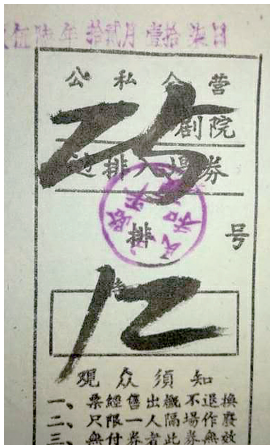 公私合营
剧院
边排入場券
25
排 号
12
观众须知
一、票經售出概不退換
二、只限一人隔場作廢
三、無付券者此券無效